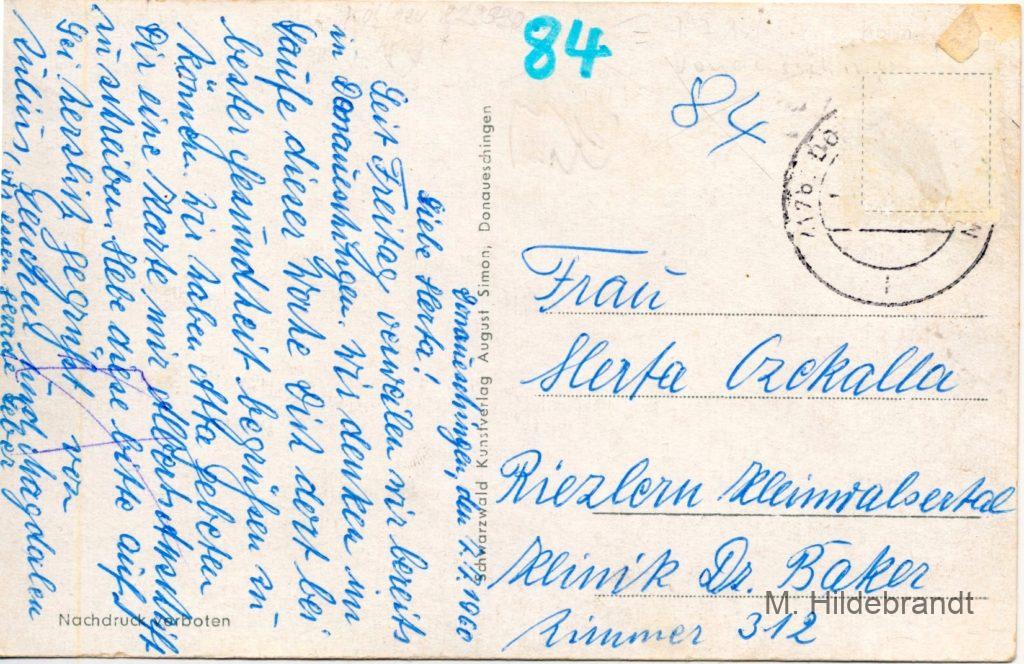 84
84
Donaueschingen, den 7.1.1960
Liebe Herta!
Seit Freitag verweilen wir bereits
in Donaueschingen. Wir denken im
Laufe dieser Woche Dich dort bei
bester Gesundheit begrüßen zu
können. Wir haben Atta gebeten
Dir eine Karte mit
zu schreiben. Hebe diese bitte auf!
Sei herzlich gegrüßt von
Julius, und Magdalen
Schwarzwald Kunstverlag August Simon, Donaueschingen
Nachdruck verboten
Frau
Herta Czekalla
Riezlern Kleinwalsertal
Klinik Dr. Bäker
Zimmer 312
M. Hildebrandt